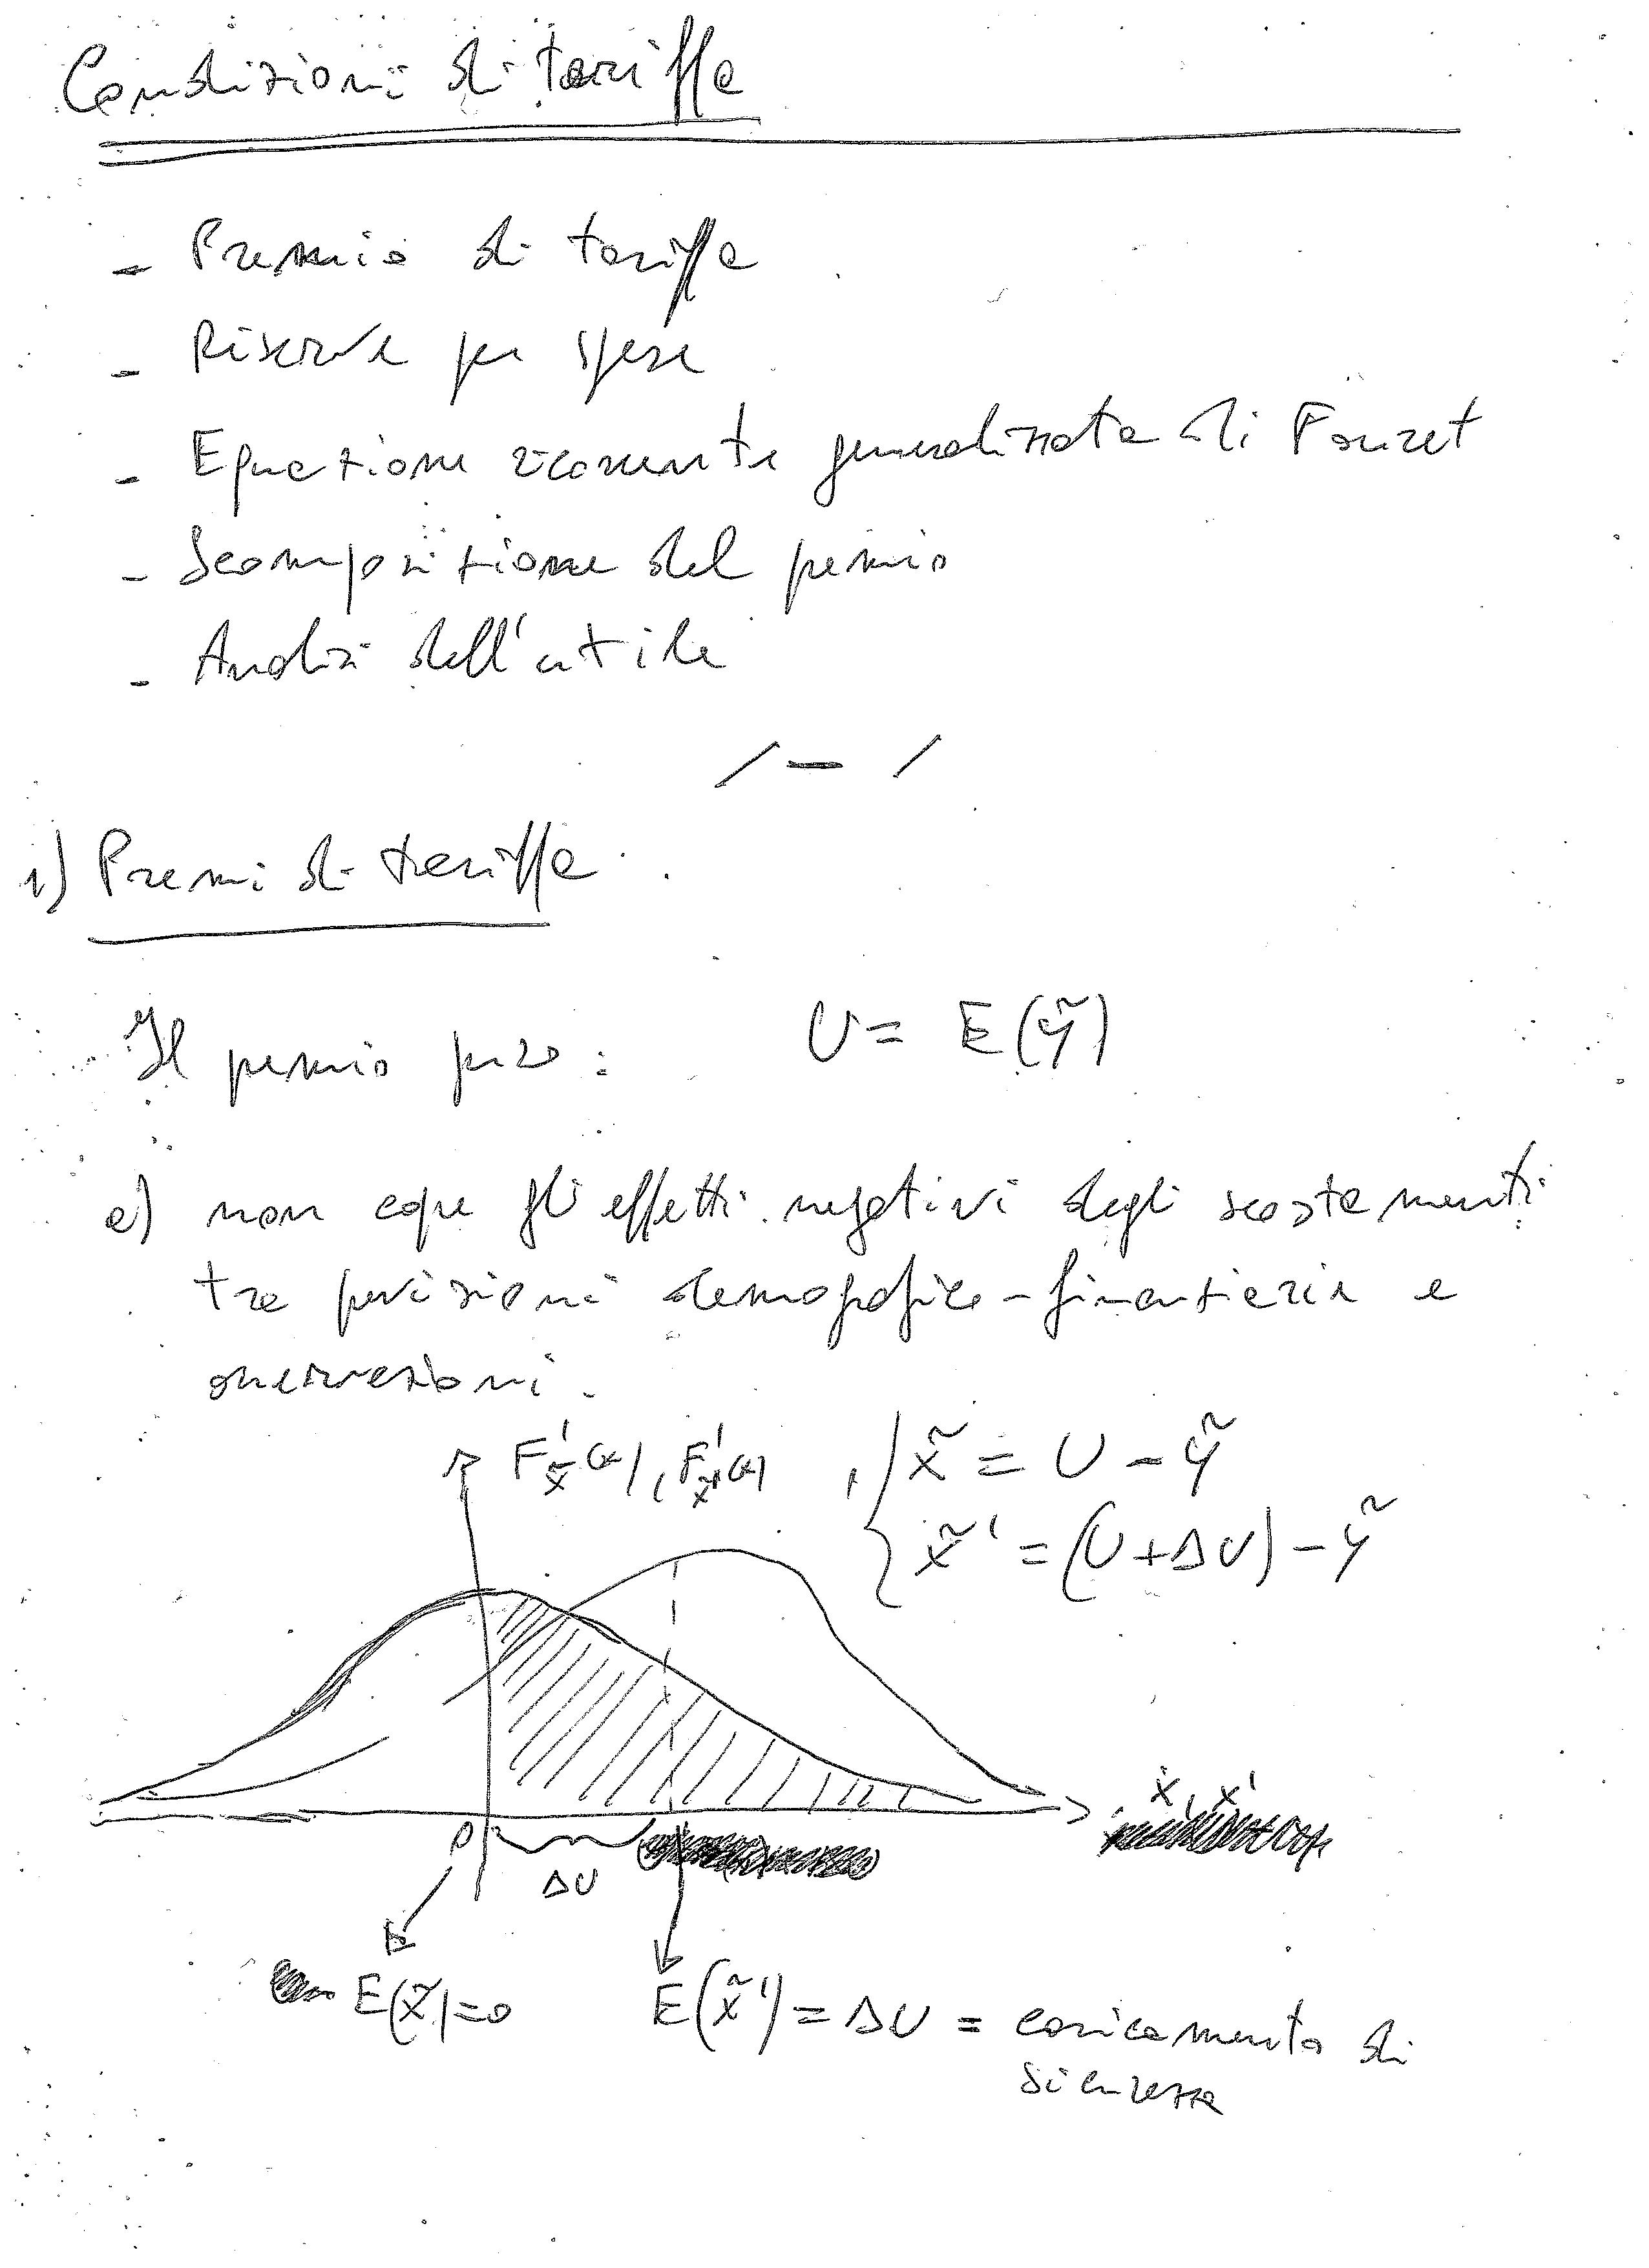 Condizioni di tariffa
- Premio di tariffa
- Riserve per spese
- Equazione ricorrente generalizzata di Fouret
- Scomposizione del premio
- Analisi dell'utile
/ - /
1) Premi di tariffa
Il premio puro: U = E(ỹ)
a) non copre gli effetti negativi degli scostamenti
tra previsioni demografico-finanziarie e
osservazioni.
F'x̃(x), F'x̃'(x) , { x̃ = U - ỹ
x̃' = (U + ΔU) - ỹ
x, x'
0
ΔU
E(x̃) = 0 E(x̃') = ΔU = caricamento di
sicurezza